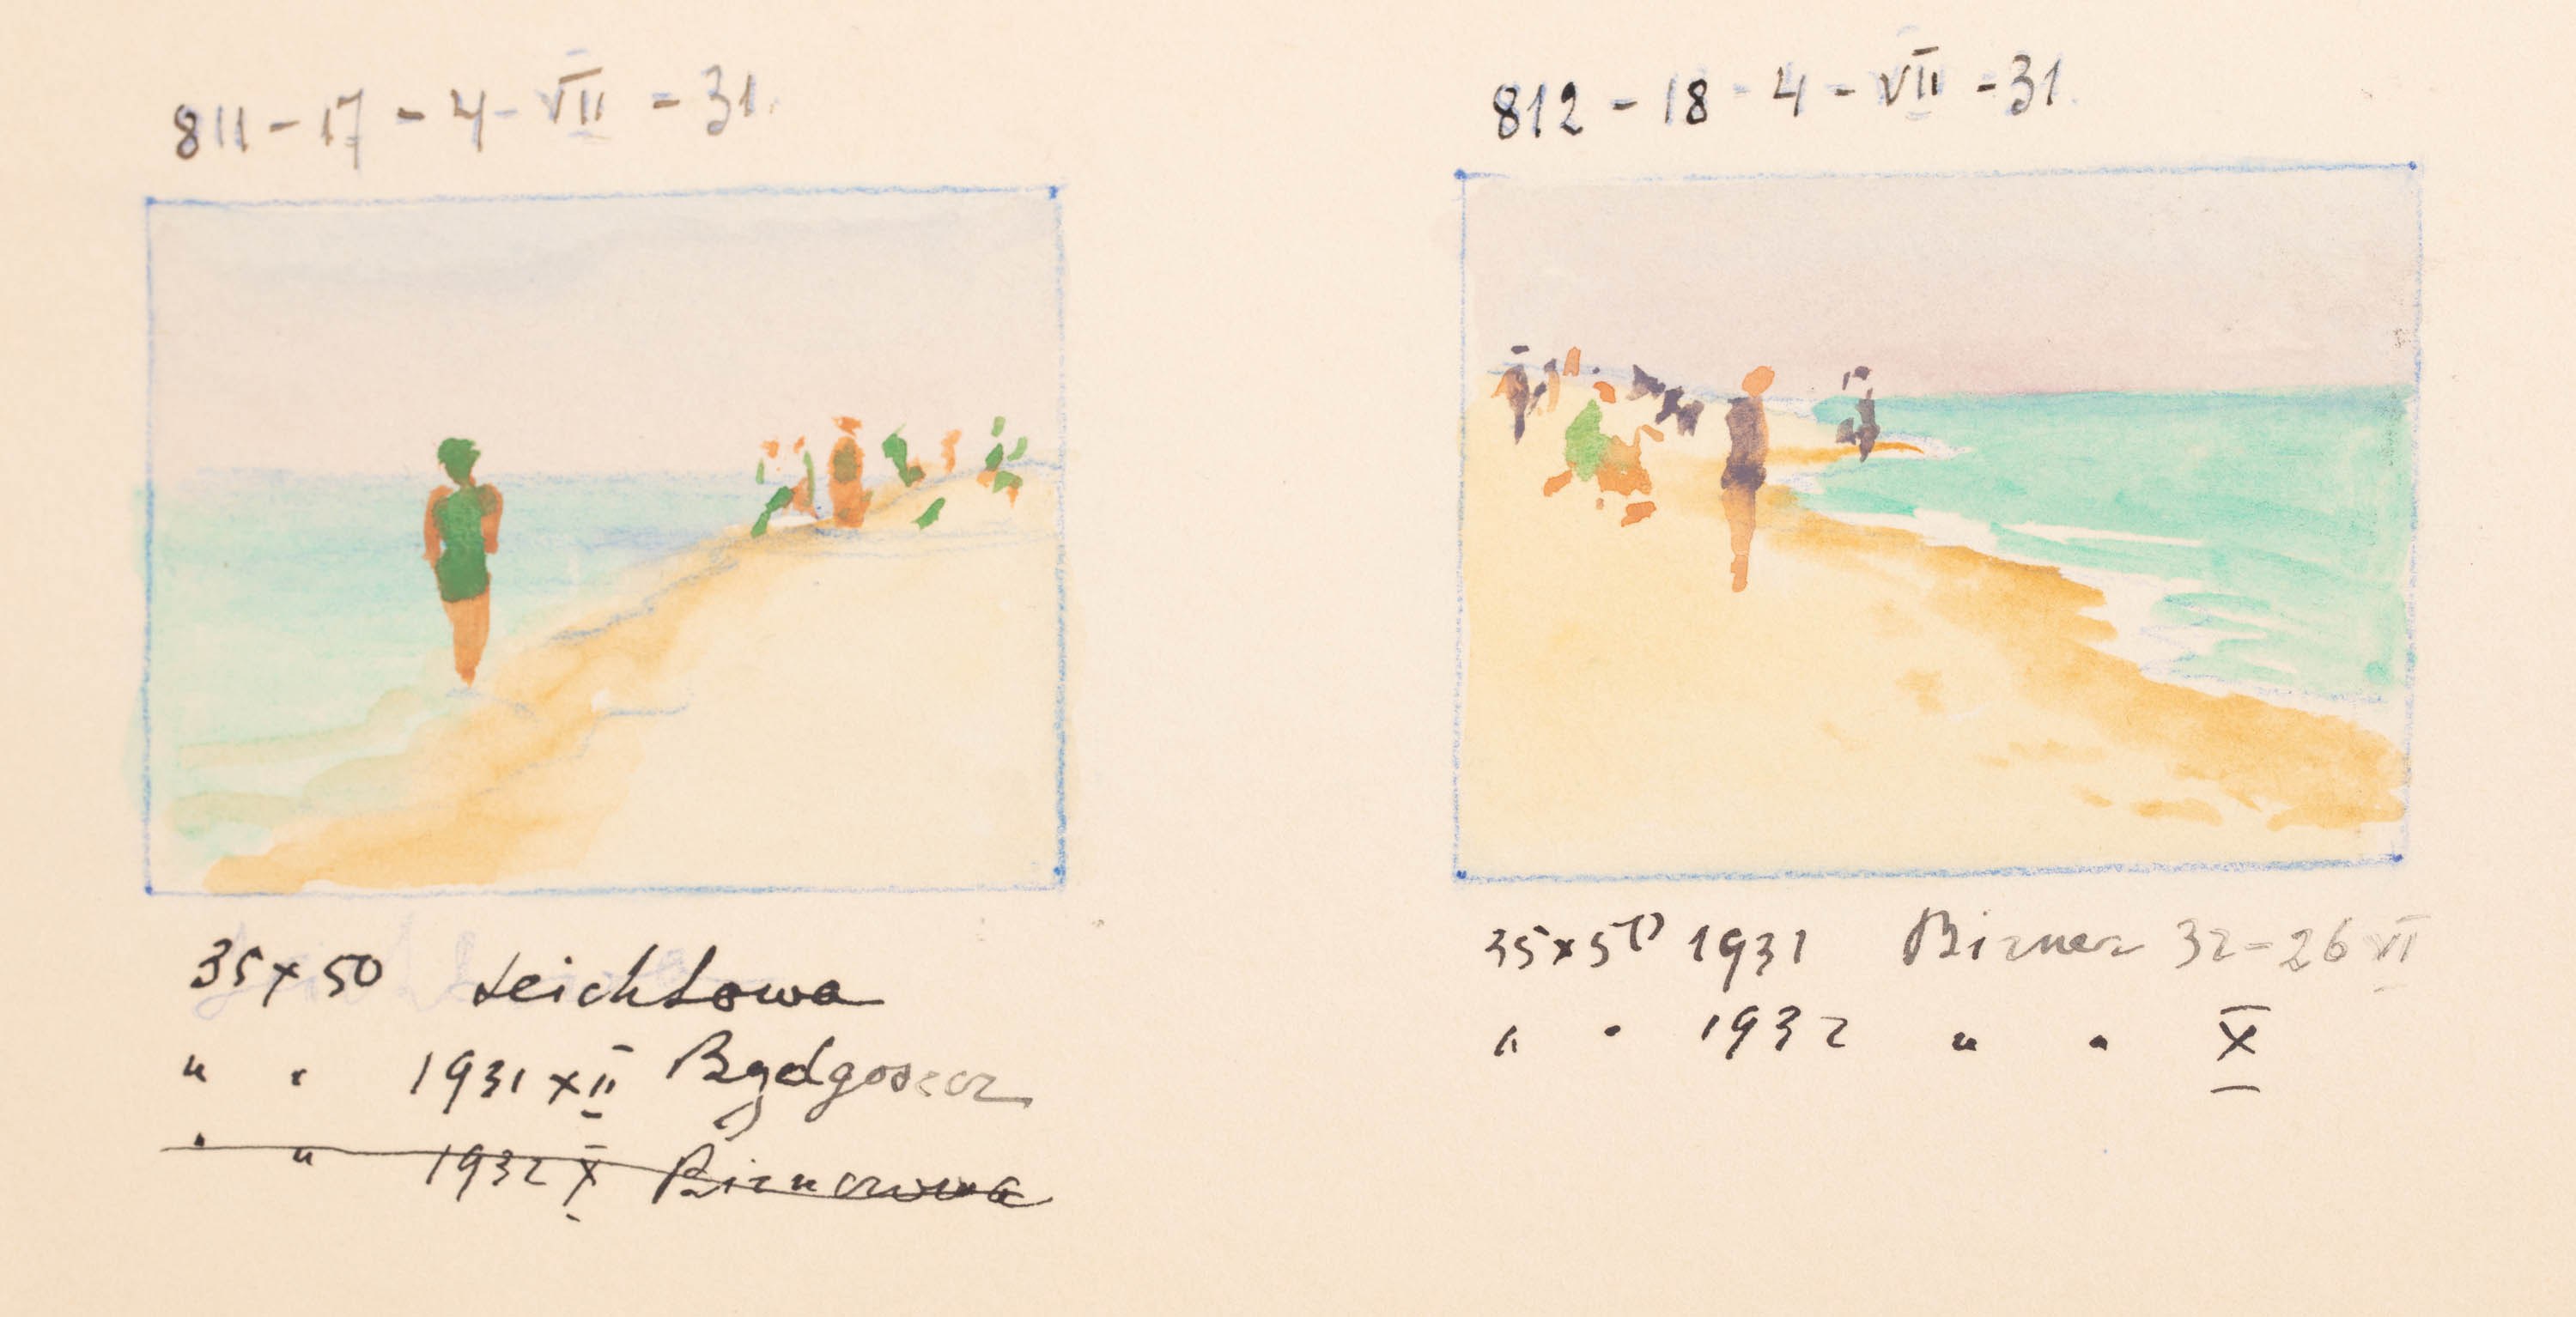 811 - 17 - 4 - VII - 31.
35 x 50 Leichtowa
" " 1931 XII Bydgoszcz
" " 1932 X
812 - 18 - 4 - VII - 31.
35 x 50 1931 32 - 26 VI
" " 1932 " " X